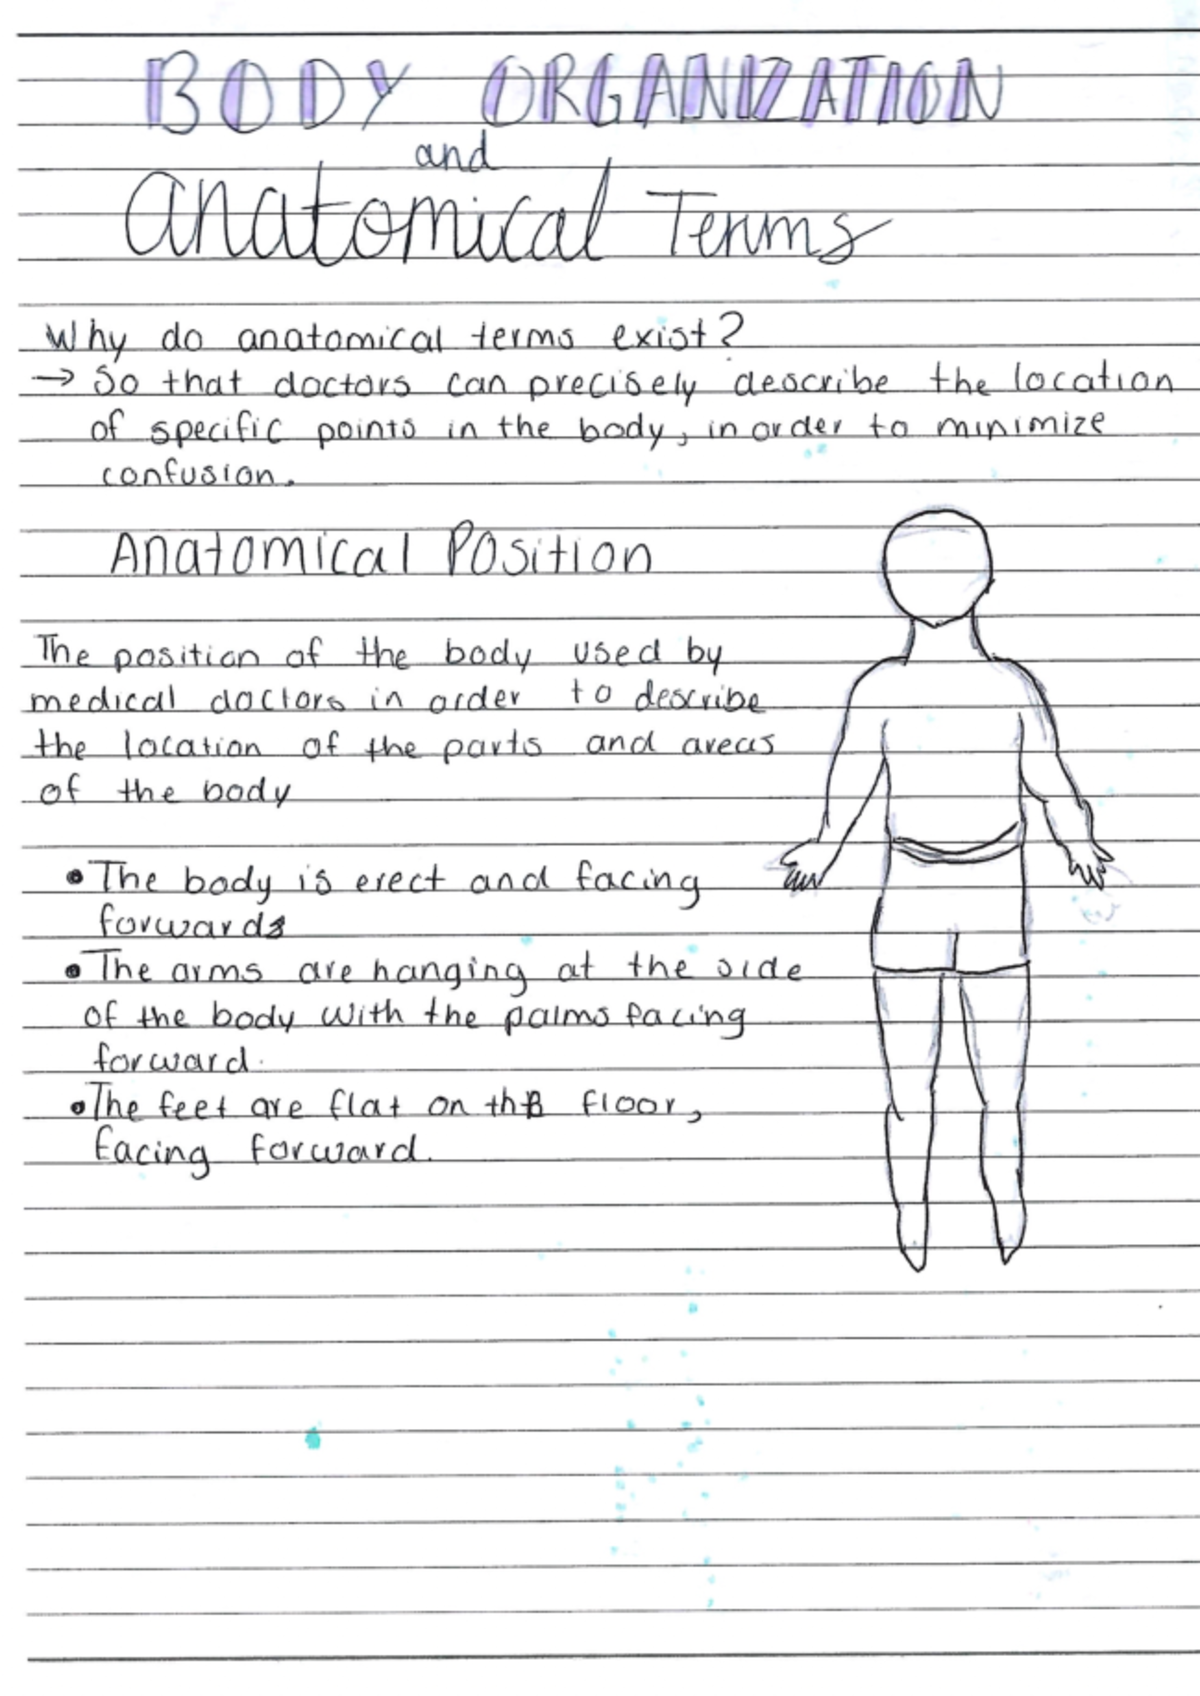 BODY ORGANIZATION
and
Anatomical Terms
Why do anatomical terms exist?
→ So that doctors can precisely describe the location
of specific points in the body, in order to minimize
confusion.
Anatomical Position
The position of the body used by
medical doctors in order to describe
the location of the parts and areas
of the body
• The body is erect and facing
forwards
• The arms are hanging at the side
of the body with the palms facing
forward.
• The feet are flat on the floor,
facing forward.